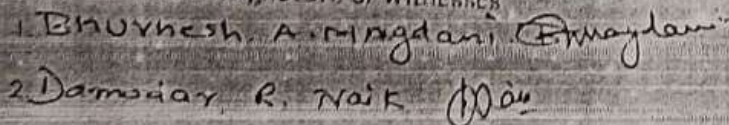 1. Bhuvnesh. A. Magdani
2. Damodar R. Naik